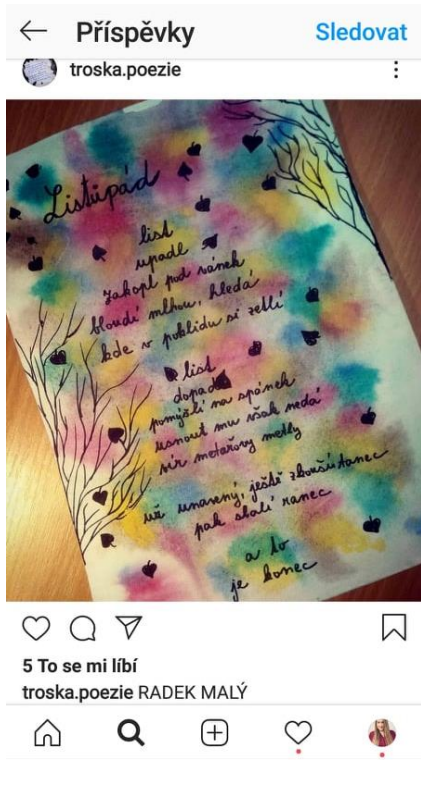 Příspěvky Sledovat
troska.poezie
Listupád
list
upadl
zakopl pod vánek
bloudí mlhou, hledá
kde v poklidu si zetlí
list
dopadl
pomýšlí na spánek
usnout mu však nedá
vír metařovy metly
už unavený, ještě zkouší tanec
pak sbalí ranec
a to
je konec
5 To se mi líbí
troska.poezie RADEK MALÝ